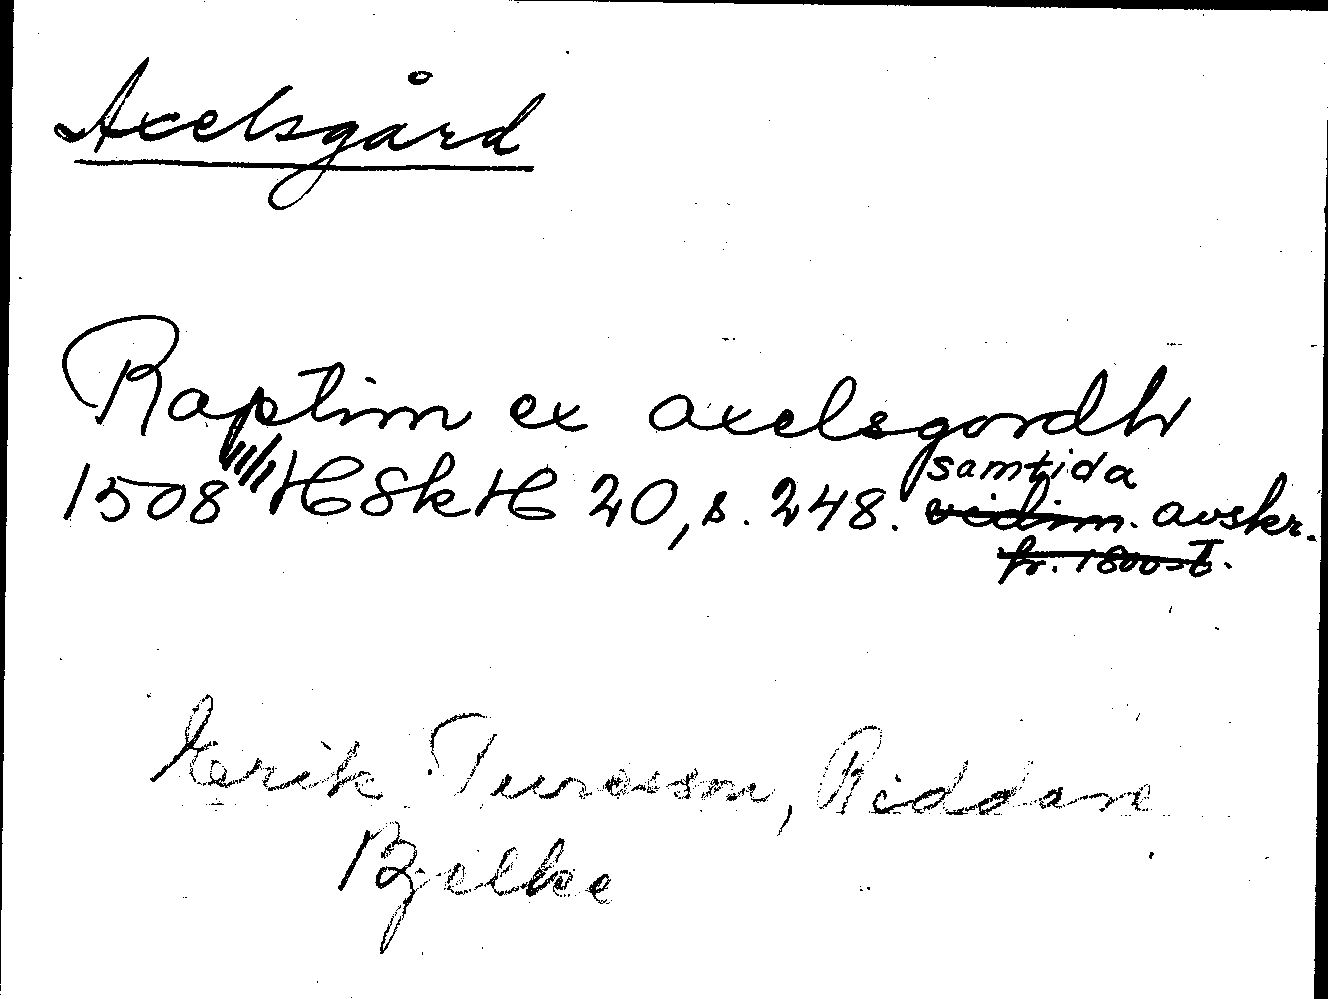 Axelsgård
Raptim ex axelsgordh
1508 11/11 HSkH 20, s. 248. samtida vidim. avskr.
fr. 1800-t.
Erik Turesson, Riddare
Bjelke